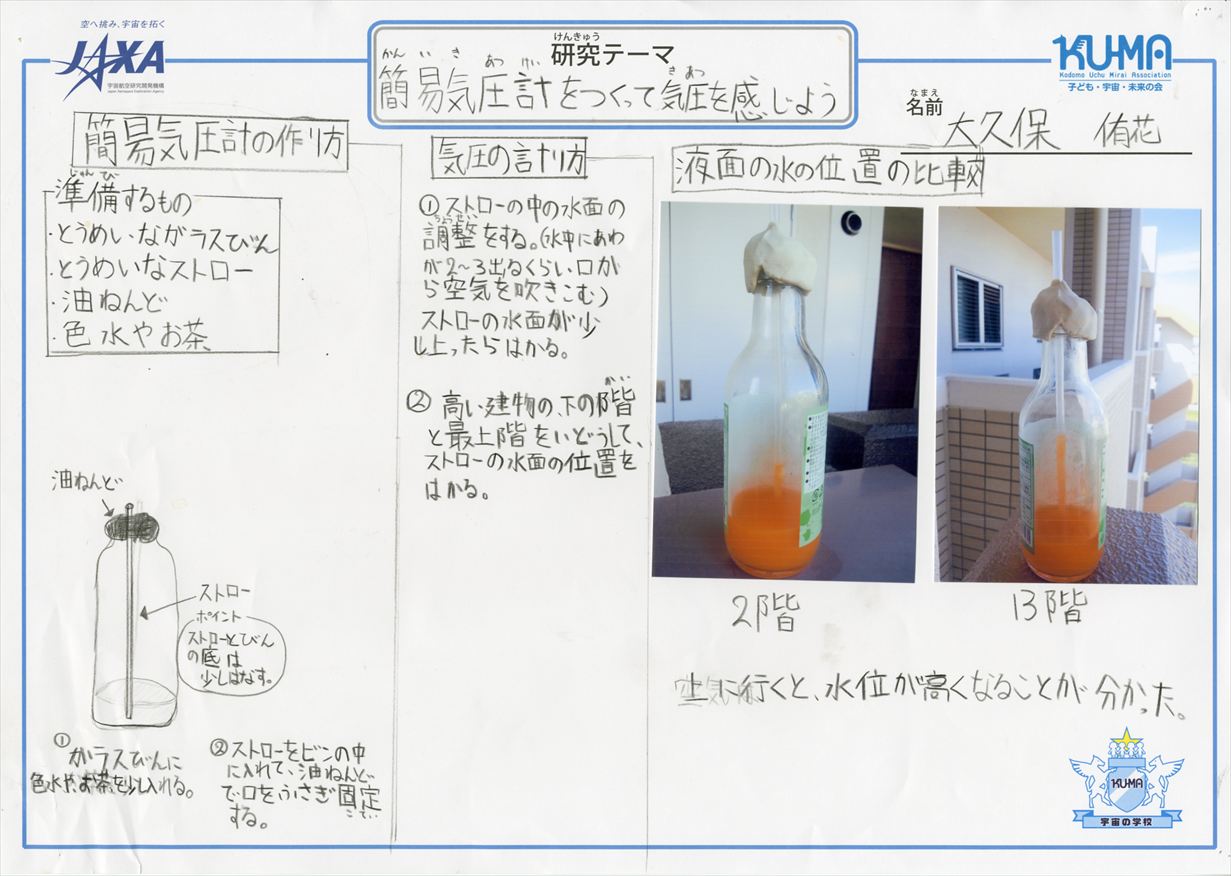 空へ挑み、宇宙を拓く
JAXA
宇宙航空研究開発機構
Japan Aerospace Exploration Agency
けんきゅう
研究テーマ
かんいきあつけい きあつ
簡易気圧計をつくって気圧を感じよう
KU-MA
Kodomo Uchu Mirai Association
子ども・宇宙・未来の会
なまえ
名前 大久保 侑花
簡易気圧計の作り方
じゅんび
準備するもの
・とうめいながラスびん
・とうめいなストロー
・油ねんど
・色水やお茶
油ねんど
ストロー
ポイント
ストローとびん
の底は
少しはなす。
①がラスびんに
色水や、お茶を少し入れる。
②ストローをビンの中
に入れて、油ねんど
で口をふさぎ固定
こてい
する。
気圧の計り方
①ストローの中の水面の
ちょうせい
調整をする。(水中にあわ
が2〜3出るくらい、口か
ら空気を吹きこむ)
ストローの水面が少
し上ったらはかる。
かい
②高い建物の、下の階
と最上階をいどうして、
ストローの水面の位置を
はかる。
液面の水の位置の比較
2階
13階
に行くと、水位が高くなることが分かった。
KUMA
宇宙の学校